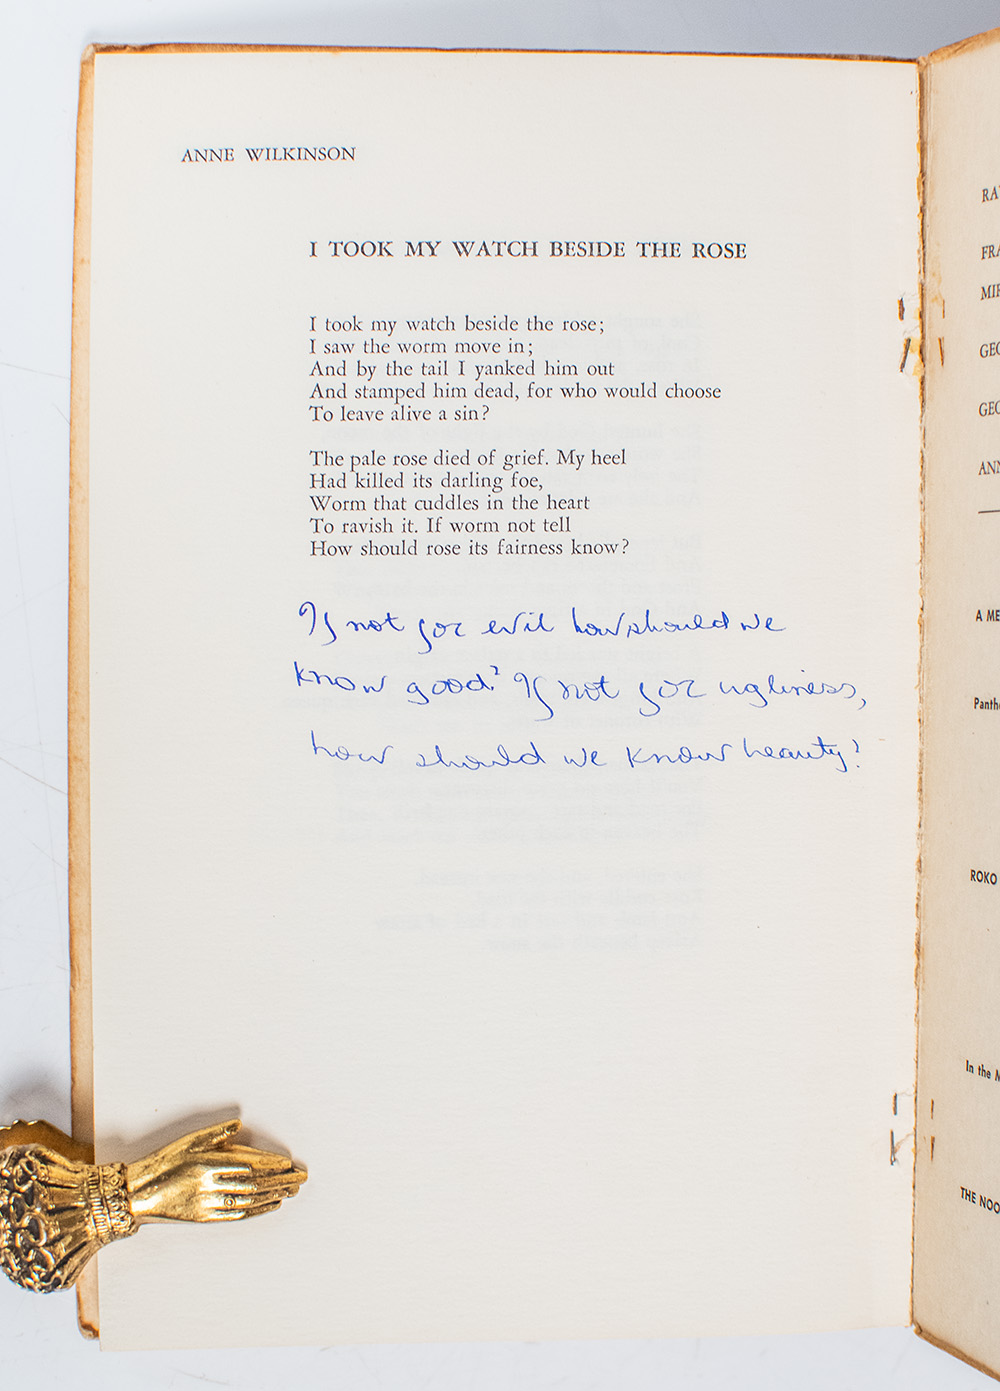 ANNE WILKINSON
I TOOK MY WATCH BESIDE THE ROSE
I took my watch beside the rose;
I saw the worm move in;
And by the tail I yanked him out
And stamped him dead, for who would choose
To leave alive a sin?
The pale rose died of grief. My heel
Had killed its darling foe,
Worm that cuddles in the heart
To ravish it. If worm not tell
How should rose its fairness know?
If not for evil how should we
know good? If not for ugliness,
how should we know beauty?
RA
FRA
MIR
GEO
GEO
ANN
A ME
Panth
ROKO
In the M
THE NOO